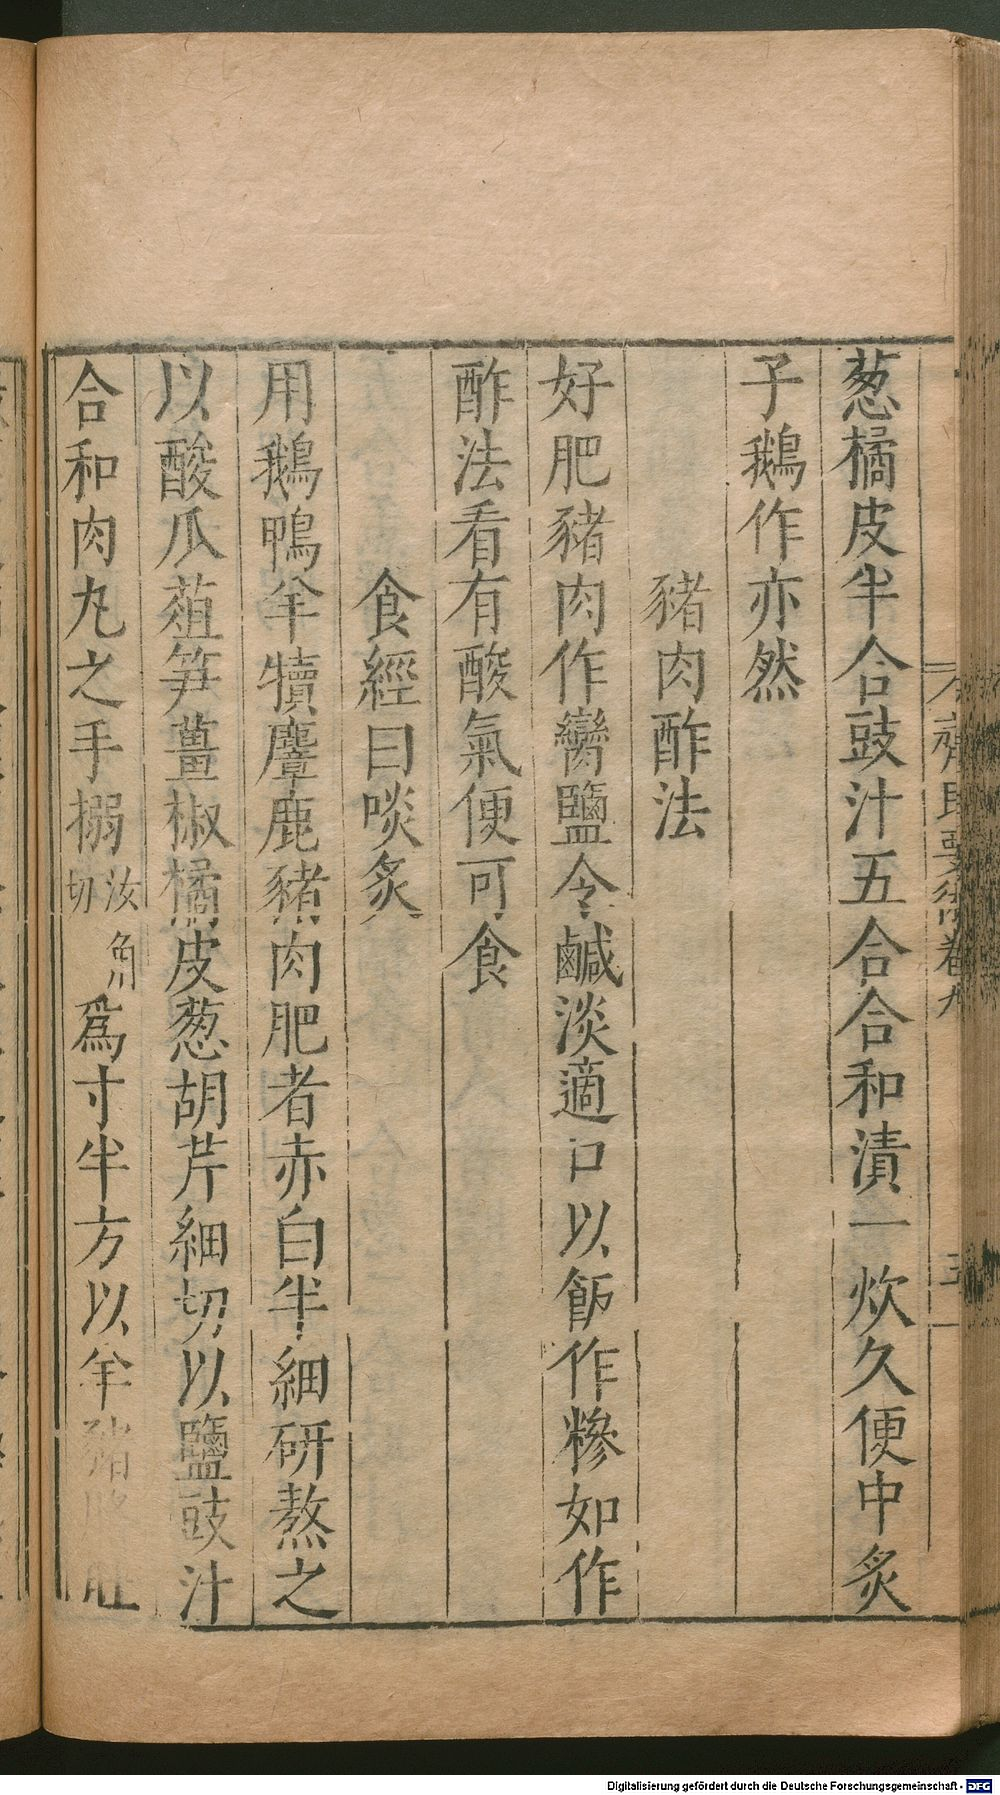 葱橘皮半合豉汁五合合和漬一炊久便中炙
子鵝作亦然
豬肉酢法
好肥豬肉作臠鹽令鹹淡適口以飯作糝如作
酢法看有酸氣便可食
食經曰啖炙
用鵝鴨羊犢麞鹿豬肉肥者赤白半細研熬之
以酸瓜菹笋薑椒橘皮葱胡芹細切以鹽豉汁
合和肉丸之手搦汝角切爲寸半方以羊豬
齊民要術卷九
Digitalisierung gefördert durch die Deutsche Forschungsgemeinschaft - DFG